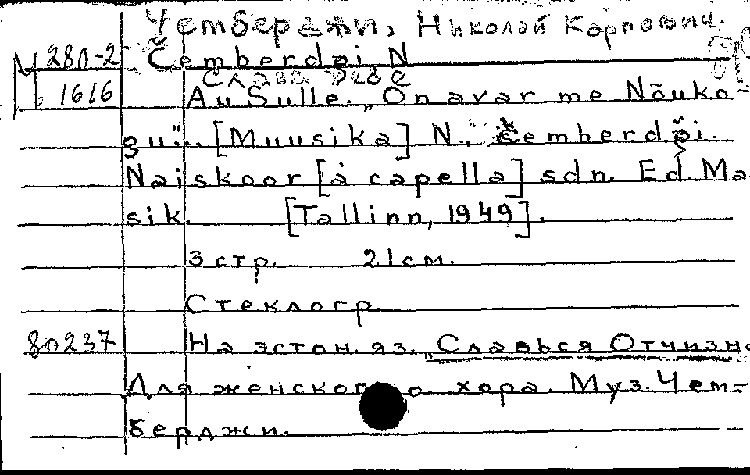 Чемберджи, Николай Карпович.
М 280-2 Čemberdži, N
1616 Слава тебе
Au Sulle. „On avar me Nõuko-
gu“. [Muusika] N. Čemberdži.
Naiskoor [à capella] sdn. Ed. Ma-
sik. [Tallinn, 1949].
3 стр. 21 см.
Стеклогр.
8п237 На эстон. яз. „Славься Отчизн
Для женского хора. Муз. Чем-
берджи.